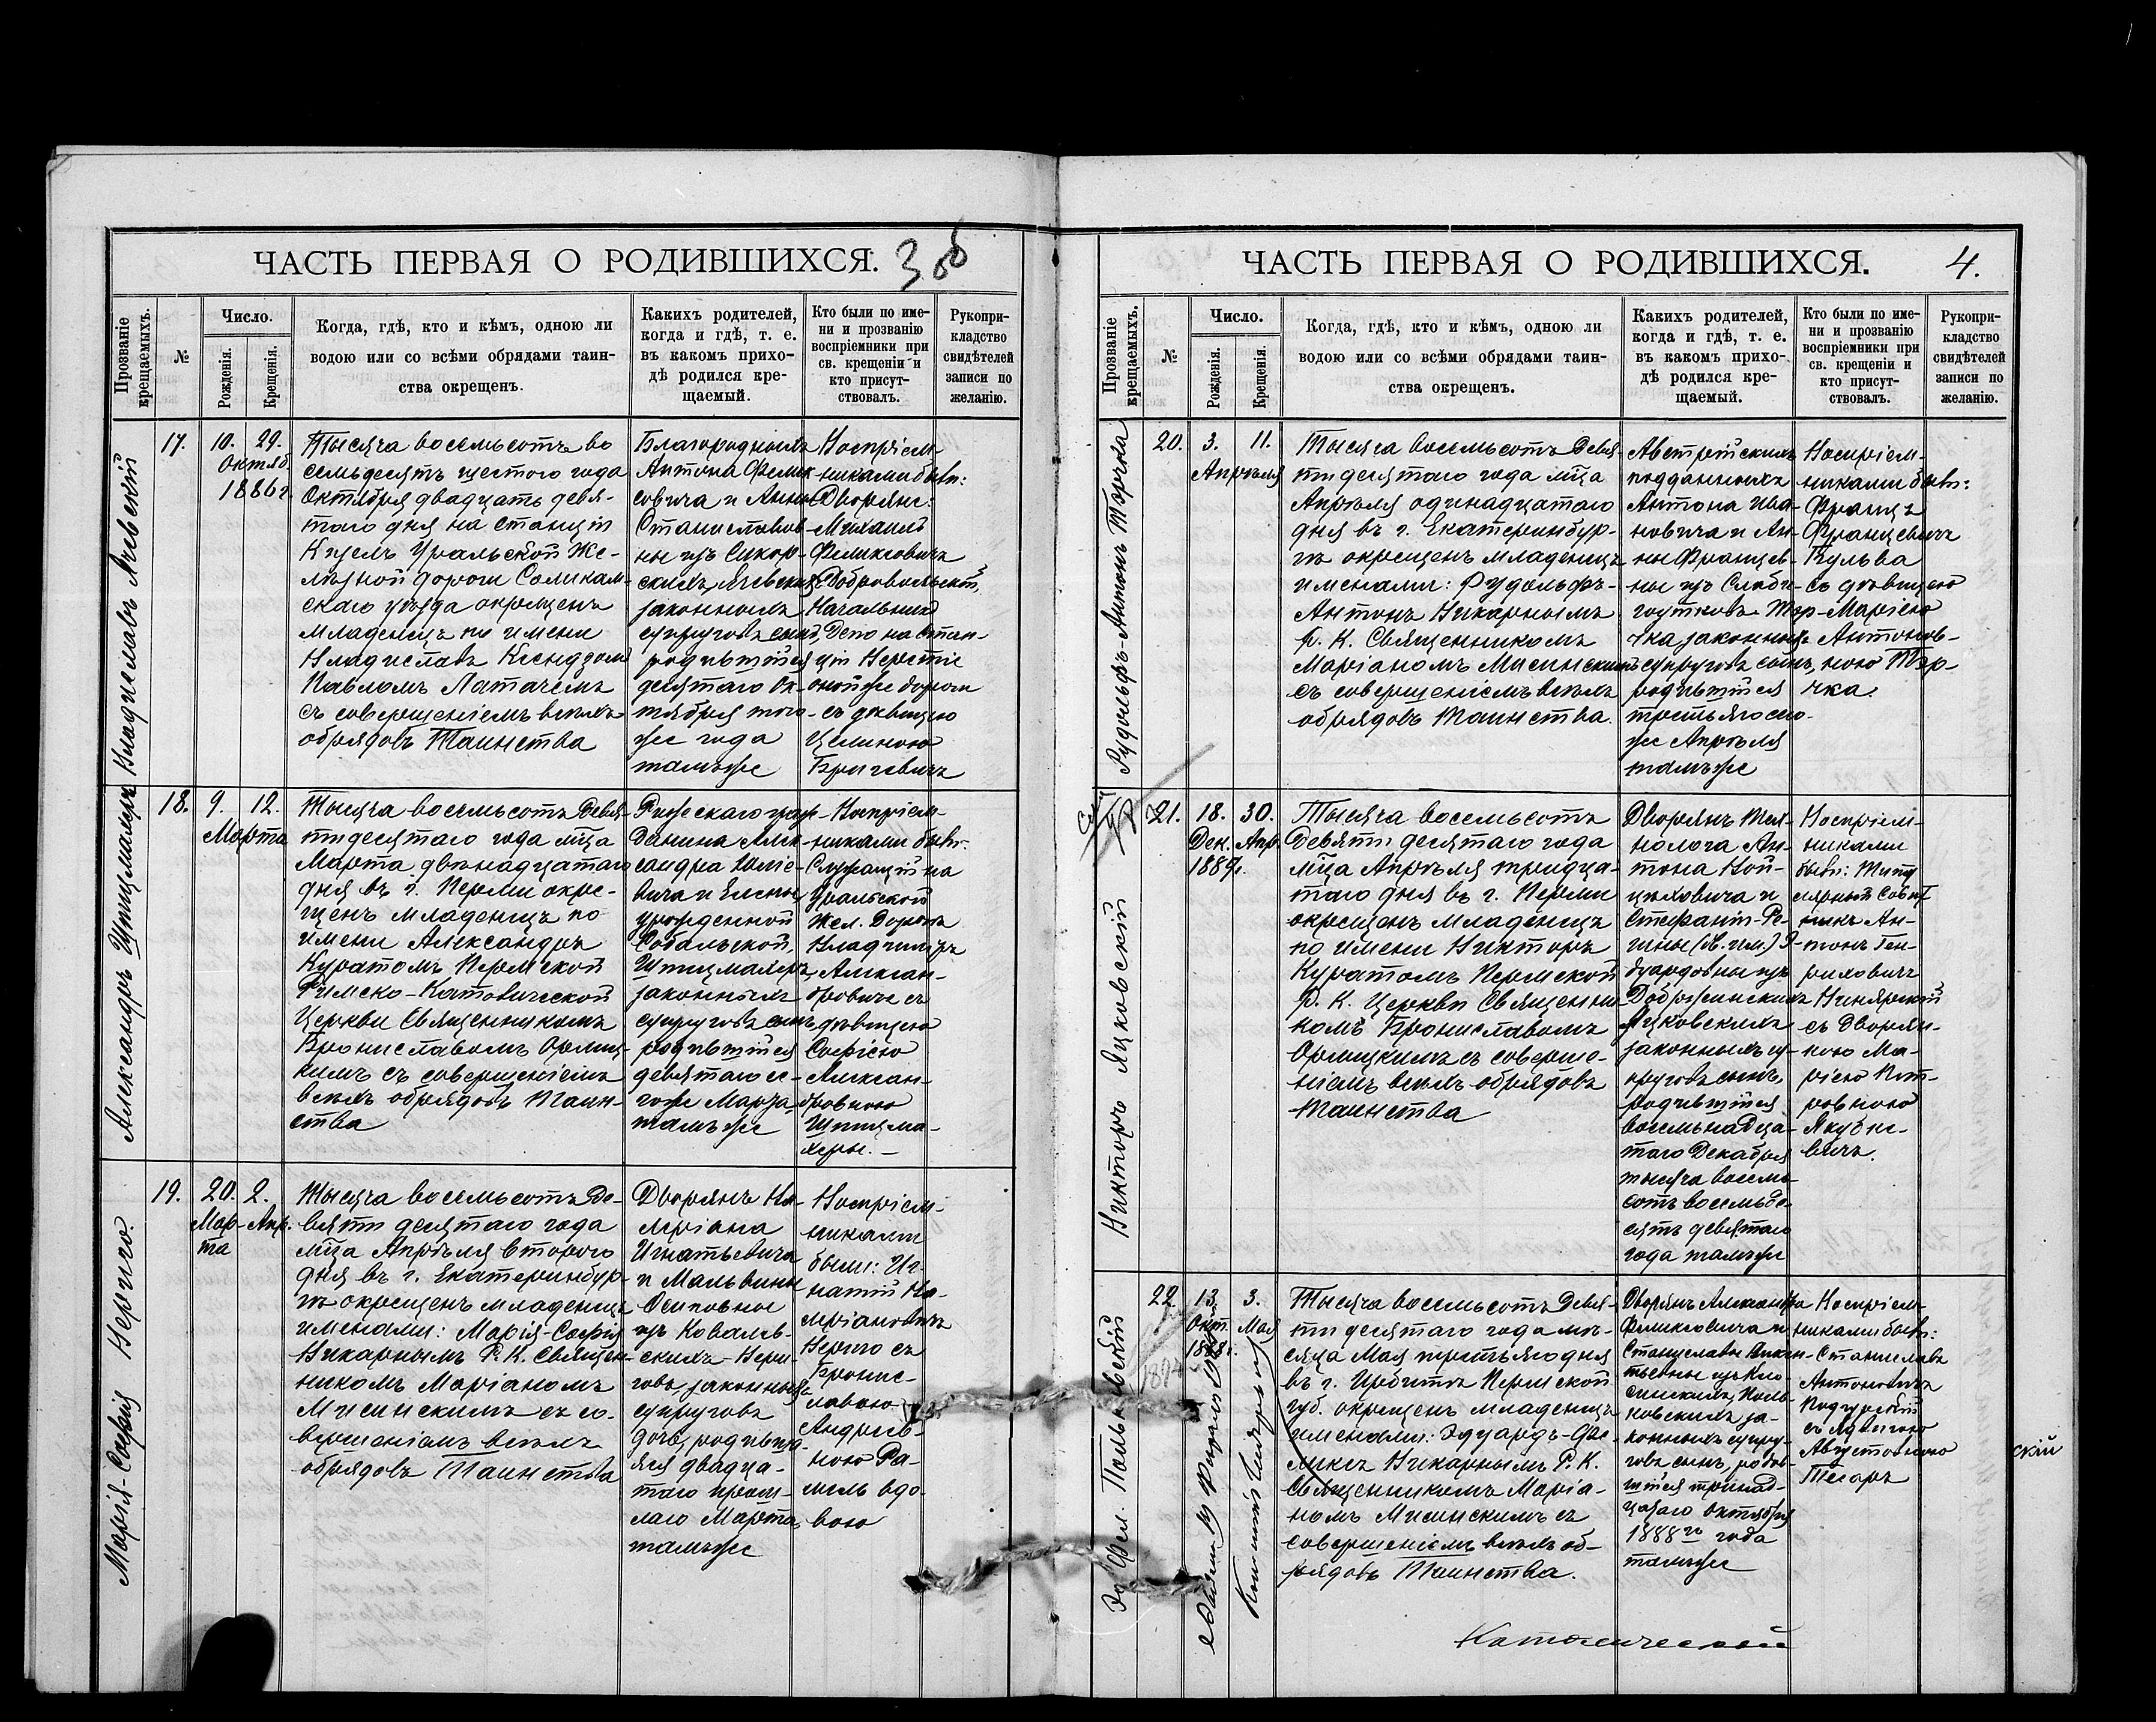 ЧАСТЬ ПЕРВАЯ О РОДИВШИХСЯ.
Прозваніе крещаемыхъ.
№
Число.
Рожденія.
Крещенія.
Когда, гдѣ, кто и кѣмъ, одною ли
водою или со всѣми обрядами таин-
ства окрещенъ.
Какихъ родителей,
когда и гдѣ, т. е.
въ какомъ прихо-
дѣ родился кре-
щаемый.
Кто были по име-
ни и прозванію
воспріемники при
св. крещеніи и
кто присут-
ствовалъ.
Рукопри-
кладство
свидѣтелей
записи по
желанію.
Владиславъ
17.
10. 29.
Октяб.
1886 г.
Тысяча восемьсотъ во
семьдесятъ шестого года
Октября двадцать девя-
таго дня на станціи
Кизелъ Уральской Же-
лѣзной дороги Соликам-
скаго уѣзда окрещенъ
младенецъ по имени
Владиславъ Ксендзомъ
Павломъ
съ совершеніемъ всѣхъ
обрядовъ Таинства
Благородныхъ
Антона Фелик-
совича и Анны
Станиславов-
ны изъ Сикор-
скихъ
законныхъ
супруговъ сынъ,
родившійся
десятаго Ок-
тября того-
же года
тамъже
Воспріем-
никами были:
Дворяне:
Михаилъ
Феликсовичъ
Добровольскій,
Начальникъ
Депо на стан-
ціи
оной же дороги
съ дѣвицею
Целиною
Александръ Шпицмахеръ
18.
9. 12.
Марта
Тысяча восемьсотъ девя-
тидесятаго года мѣсяца
Марта двѣнадцатаго
дня въ г. Перми окре-
щенъ младенецъ по
имени Александръ
Куратомъ Пермской
Римско-Католической
Церкви Священникомъ
Брониславомъ Орлиц-
кимъ съ совершеніемъ
всѣхъ обрядовъ Таин-
ства
Рижскаго граж-
данина Алек-
сандра Юліе-
вича и Елены
урожденной
Собальской
Шпицмахеръ,
законныхъ
супруговъ сынъ,
родившійся
девятаго се-
гоже Марта
тамъже
Воспріем-
никами были:
Служащій на
Уральской
Жел. Дорогѣ
Владиміръ
Алексан-
дровичъ съ
дѣвицею
Софіею
Алексан-
дровною
Шпицма-
херъ.
Марія-Софія Нерыго.
19.
20. 2.
Мар- Апр.
та
Тысяча восемьсотъ де-
вяти десятаго года
мѣсяца Апрѣля второго
дня въ г. Екатеринбур-
гѣ окрещенъ младенецъ
именами: Марія-Софія
Викарнымъ Р. К. Священ-
никомъ Маріаномъ
Мисинскимъ съ со-
вершеніемъ всѣхъ
обрядовъ Таинства
Дворянъ Ва-
леріана
Игнатьевича
и Мальвины
Осиповны
изъ Коваль-
скихъ Нери-
говъ, законныхъ
супруговъ
дочь, родивша-
яся двадца-
таго прош-
лаго Марта
тамъже
Воспріем-
никами
были: Иг-
натій Ва-
леріановичъ
Нерыго съ
Бронис-
лавою
Андреев-
ною
вдо-
вою
ЧАСТЬ ПЕРВАЯ О РОДИВШИХСЯ.
4.
Прозваніе крещаемыхъ.
№
Число.
Рожденія.
Крещенія.
Когда, гдѣ, кто и кѣмъ, одною ли
водою или со всѣми обрядами таин-
ства окрещенъ.
Какихъ родителей,
когда и гдѣ, т. е.
въ какомъ прихо-
дѣ родился кре-
щаемый.
Кто были по име-
ни и прозванію
воспріемники при
св. крещеніи и
кто присут-
ствовалъ.
Рукопри-
кладство
свидѣтелей
записи по
желанію.
Рудольфъ-Антонъ Торчка
20.
3. 11.
Апрѣля
Тысяча восемьсотъ девя-
тидесятаго года мѣсяца
Апрѣля одинадцатаго
дня въ г. Екатеринбур-
гѣ окрещенъ младенецъ
именами: Рудольфъ-
Антонъ Викарнымъ
р. К. Священникомъ
Маріаномъ Мисинскимъ
съ совершеніемъ всѣхъ
обрядовъ Таинства.
Австрійскихъ
подданныхъ
Антона Ива-
новича и Ан-
ны Францев-
ны изъ
Тор-
чка законныхъ
супруговъ сынъ,
родившійся
третьяго сего-
же Апрѣля
тамъже
Воспріем-
никами были:
Францъ
Францевичъ
Кульва
съ дѣвицею
Маріею
Антонов-
ною Тор-
чка.
Викторъ Яцковскій
21.
18. 30.
Дек. Апр.
1889 г.
Тысяча восемьсотъ
девяти десятаго года
мѣсяца Апрѣля тридца-
таго дня въ г. Перми
окрещенъ младенецъ
по имени Викторъ
Куратомъ Пермской
р. К. Церкви Священни-
комъ Брониславомъ
Орлицкимъ съ соверше-
ніемъ всѣхъ обрядовъ
Таинства
Дворянъ Тех-
нолога Ан-
тона Вой-
цѣховича и
Стефаніи-Ре-
гины (дв. им.) Э-
дуардовны изъ
Доброжинскихъ
Яцковскихъ
законныхъ су-
пруговъ сынъ,
родившійся
восемьнадца-
таго Декабря
тысяча восемь-
сотъ восемьде-
сятъ девятаго
года тамъже
Воспріем-
никами
были: Титу-
лярный Совѣт-
никъ Ан-
тонъ Ген-
риховичъ
съ Дворян-
кою Ма-
ріею Пет-
ровною
Якубке-
вичъ.
22.
13. 3.
Окт. Мая
1888 г.
Тысяча восемьсотъ девя-
ти десятаго года мѣ-
сяца Мая третьяго дня
въ г. Ирбитѣ Пермской
губ. окрещенъ младенецъ
именами: Эдуардъ-Фе-
ликсъ Викарнымъ Р. К.
Священникомъ Маріа-
номъ Мисинскимъ съ
совершеніемъ всѣхъ об-
рядовъ Таинства.
Дворянъ Александра
Феликсовича и
Станиславы Викен-
тьевны изъ
законныхъ супру-
говъ сынъ, родив-
шійся тринад-
цатаго Октября
1888 го года
тамъже
Воспріем-
никами были:
Станиславъ
Антоновичъ
Подгурскій
съ Ядвигою
Августовною
Тесаръ
скій
Католической